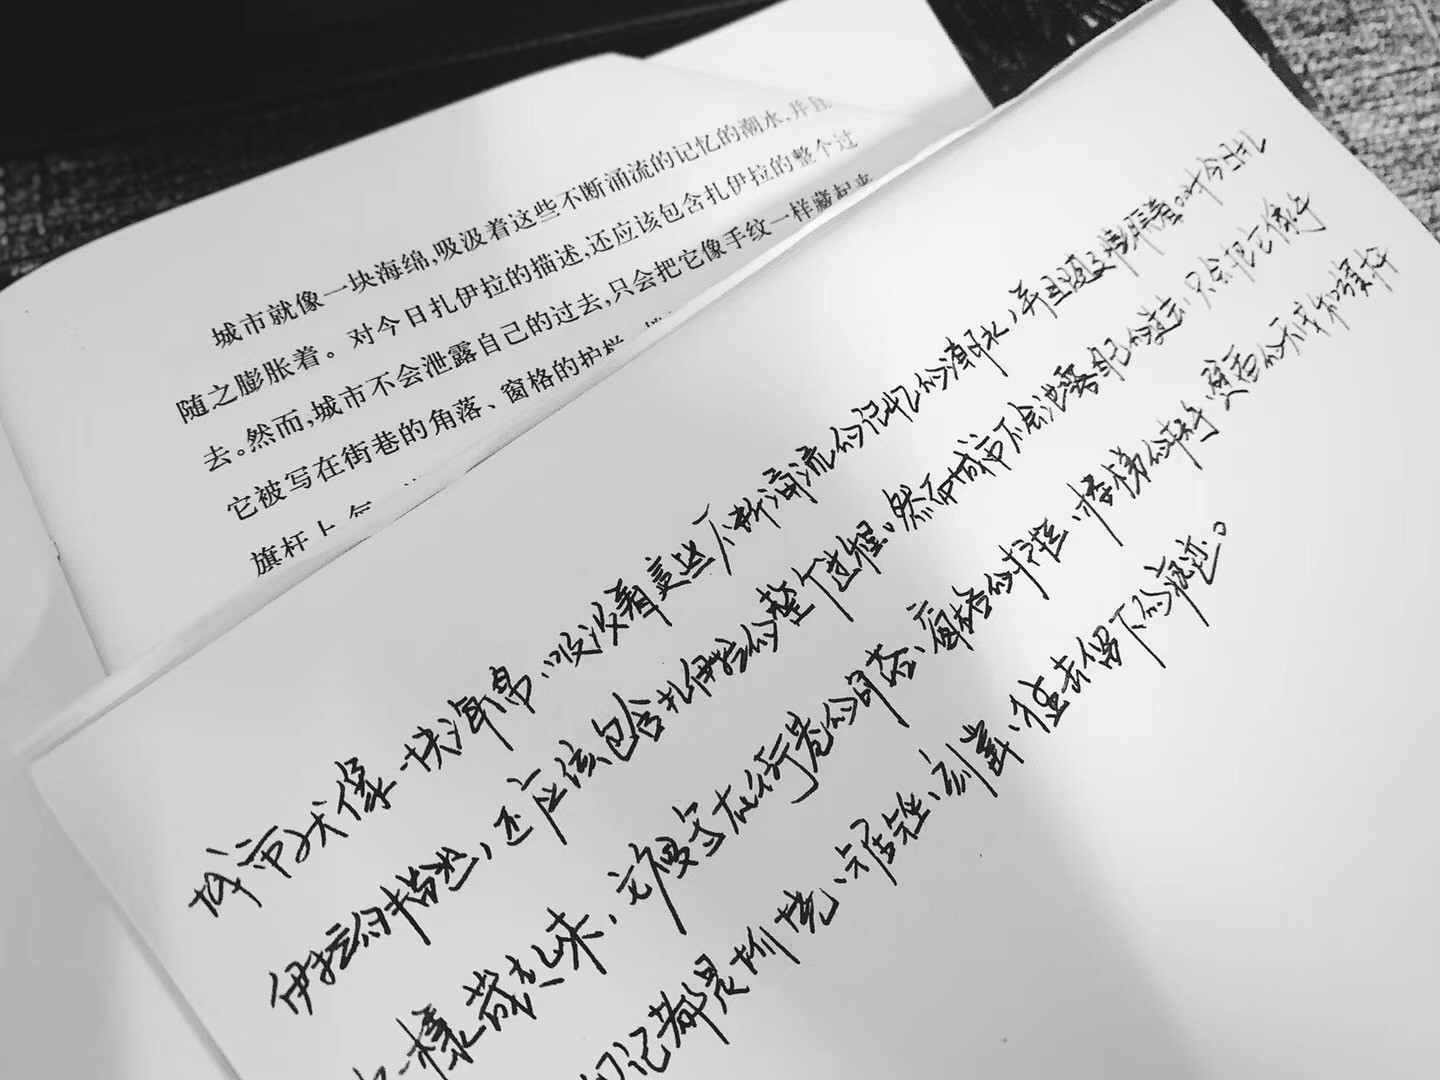 城市就像一块海绵,吸汲着这些不断涌流的记忆的潮水,并且
随之膨胀着。对今日扎伊拉的描述,还应该包含扎伊拉的整个过
去。然而,城市不会泄露自己的过去,只会把它像手纹一样藏起来
它被写在街巷的角落、窗格的护栏
旗杆上
城市就像一块海绵,吸汲着这些不断涌流的记忆的潮水,并且随之膨胀着。对今日扎
伊拉的描述,还应该包含扎伊拉的整个过程。然而城市不会泄露自己的过去,只会把它像手
一樣藏起来,它被写在街巷的角落、窗格的护栏、楼梯的扶手、
记都是
留下的痕迹。